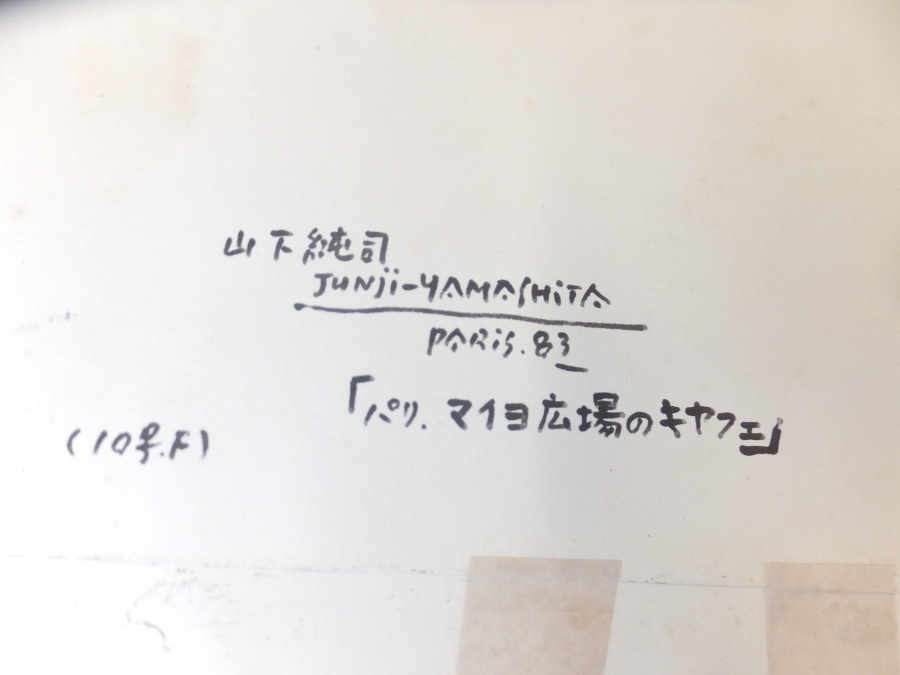 山下純司
JUNji-YAMASHiTA
PARiS.83
「パリ.マイヨ広場のキャフェ」
(10号.F)